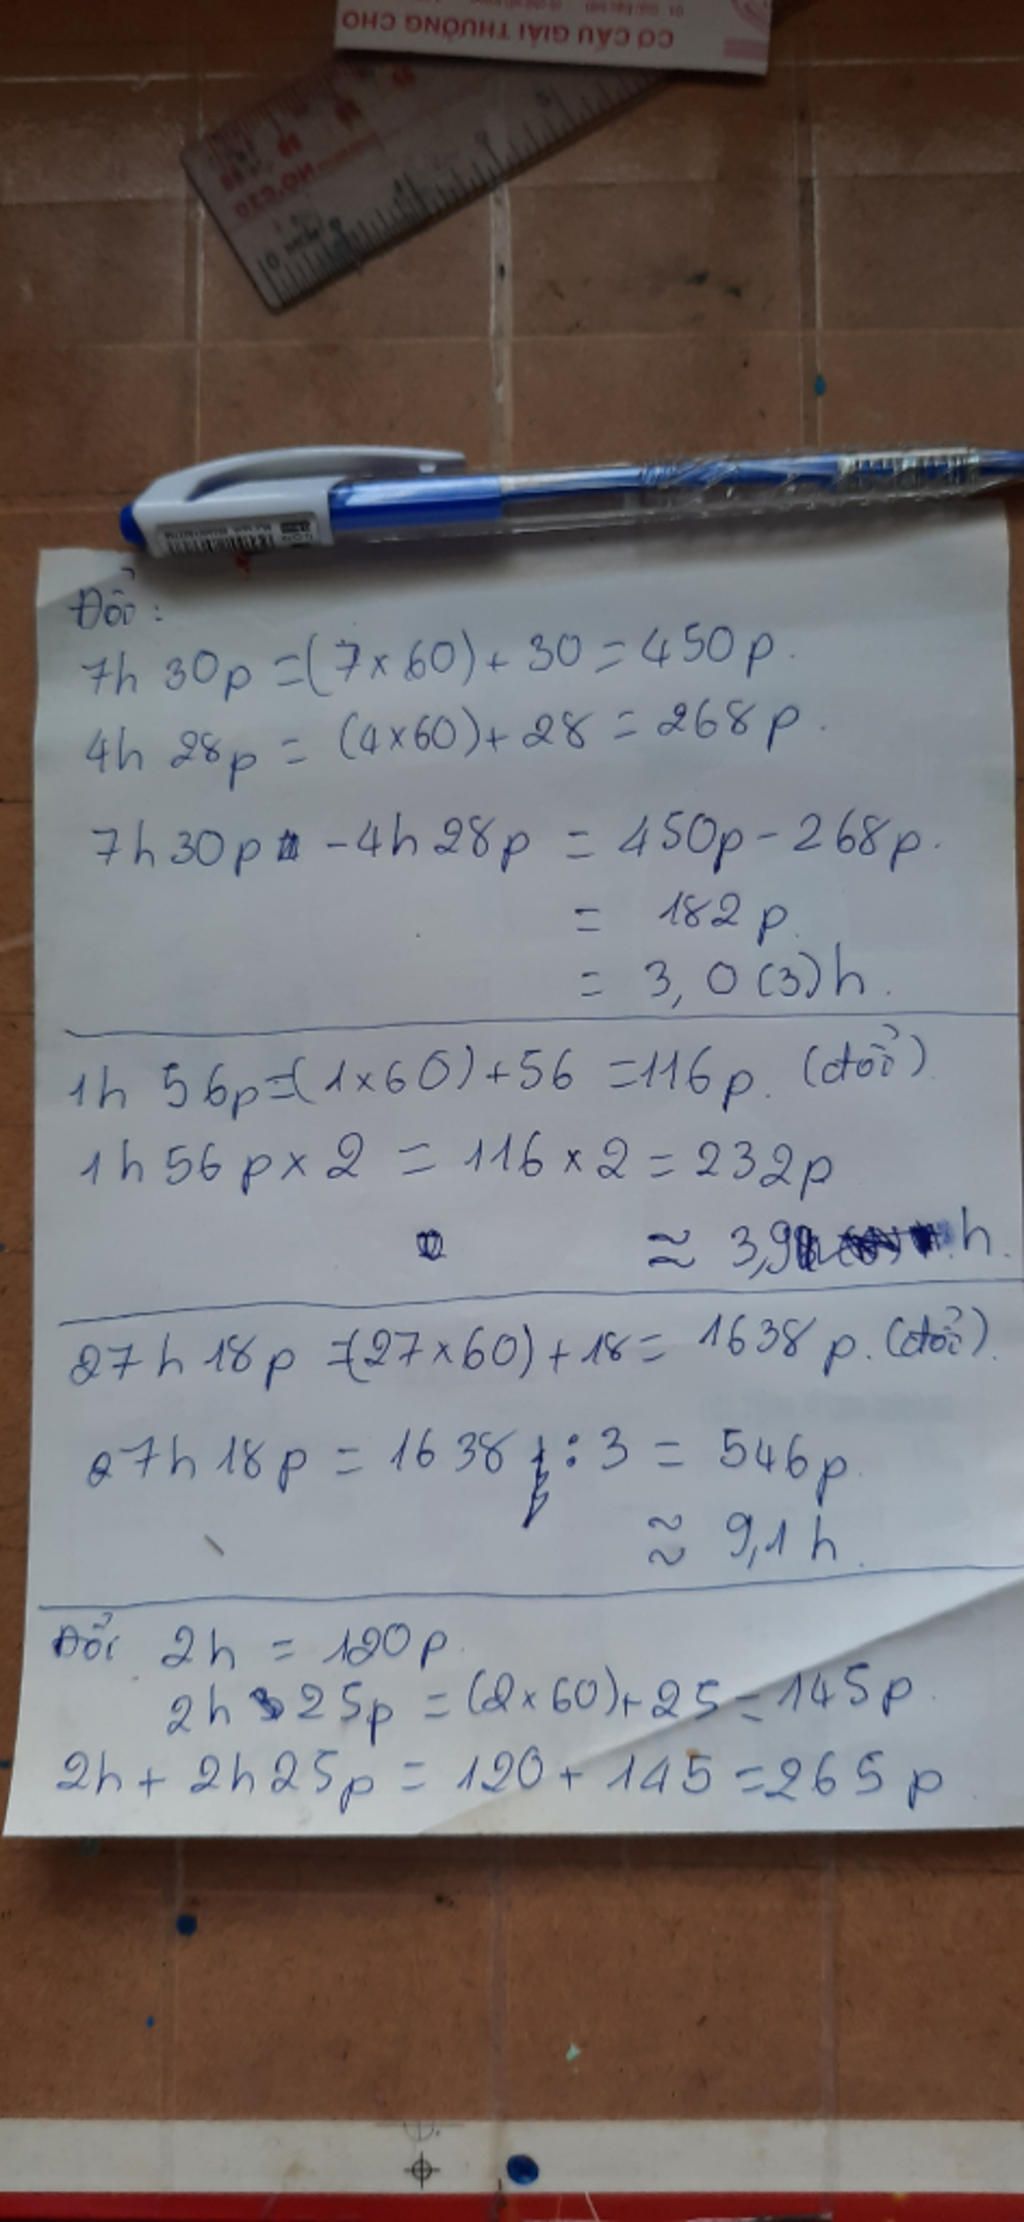 CƠ CẤU GIẢI THƯỞNG CHO
NO.C20
Đổi:
7h 30p = (7 x 60) + 30 = 450p.
4h 28p = (4x60) + 28 = 268p.
7h30p - 4h28p = 450p - 268p.
= 182p.
= 3,0(3)h.
1h 56p = (1x60) + 56 = 116p. (đổi)
1h56p x 2 = 116 x 2 = 232p
≈ 3,9 h.
27h18p = (27x60) + 18 = 1638p. (đổi).
27h18p = 1638p : 3 = 546p
≈ 9,1h.
Đổi 2h = 120p.
2h 25p = (2x60) + 25 = 145p.
2h + 2h25p = 120 + 145 = 265p